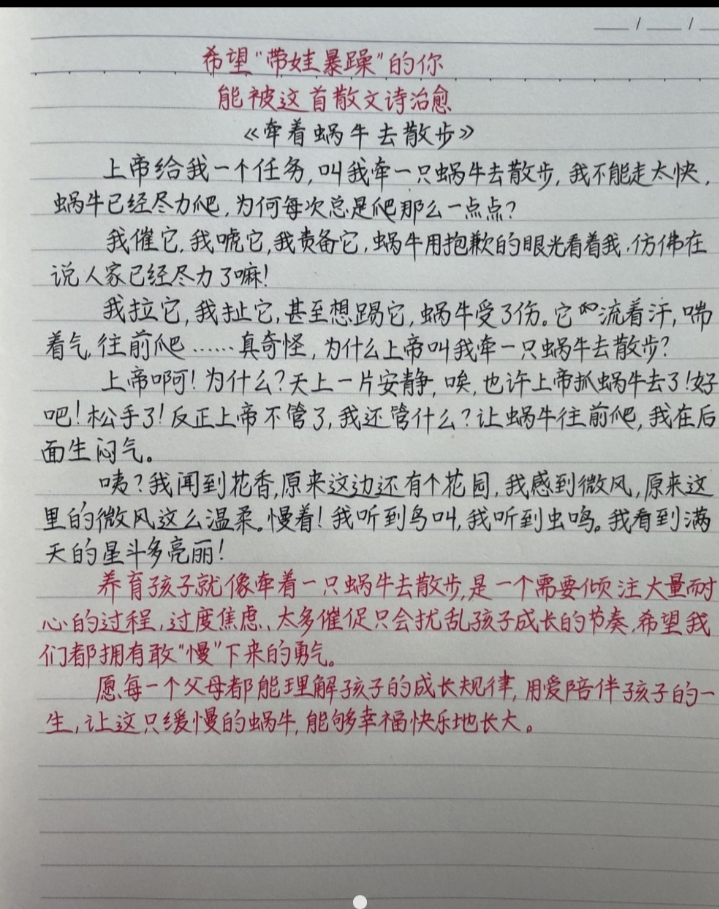 希望“带娃暴躁”的你
能被这首散文诗治愈
《牵着蜗牛去散步》
上帝给我一个任务,叫我牵一只蜗牛去散步,我不能走太快,
蜗牛已经尽力爬,为何每次总是爬那么一点点?
我催它,我唬它,我责备它,蜗牛用抱歉的眼光看着我,仿佛在
说人家已经尽力了嘛!
我拉它,我扯它,甚至想踢它,蜗牛受了伤。它 流着汗,喘
着气,往前爬……真奇怪,为什么上帝叫我牵一只蜗牛去散步?
上帝啊!为什么?天上一片安静,唉,也许上帝抓蜗牛去了!好
吧!松手了!反正上帝不管了,我还管什么?让蜗牛往前爬,我在后
面生闷气。
咦?我闻到花香,原来这边还有个花园,我感到微风,原来这
里的微风这么温柔。慢着!我听到鸟叫,我听到虫鸣。我看到满
天的星斗多亮丽!
养育孩子就像牵着一只蜗牛去散步,是一个需要倾注大量耐
心的过程,过度焦虑、太多催促只会扰乱孩子成长的节奏,希望我
们都拥有敢“慢”下来的勇气。
愿每一个父母都能理解孩子的成长规律,用爱陪伴孩子的一
生,让这只缓慢的蜗牛,能够幸福快乐地长大。